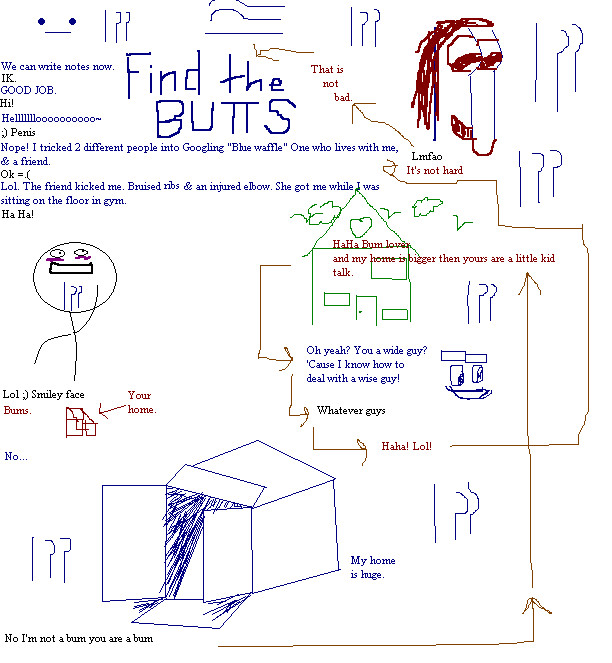 Find the
BUTTS
We can write notes now.
IK.
GOOD JOB.
Hi!
Hellllllloooooooooo~
;) Penis
Nope! I tricked 2 different people into Googling "Blue waffle" One who lives with me,
& a friend.
Ok =.(
Lol. The friend kicked me. Bruised ribs & an injured elbow. She got me while I was
sitting on the floor in gym.
Ha Ha!
That is
not
bad.
Lmfao
It's not hard
HaHa Bum lover
and my home is bigger then yours are a little kid
talk.
Oh yeah? You a wide guy?
'Cause I know how to
deal with a wise guy!
Whatever guys
Haha! Lol!
Lol ;) Smiley face
Bums.
Your
home.
No...
My home
is huge.
No I'm not a bum you are a bum